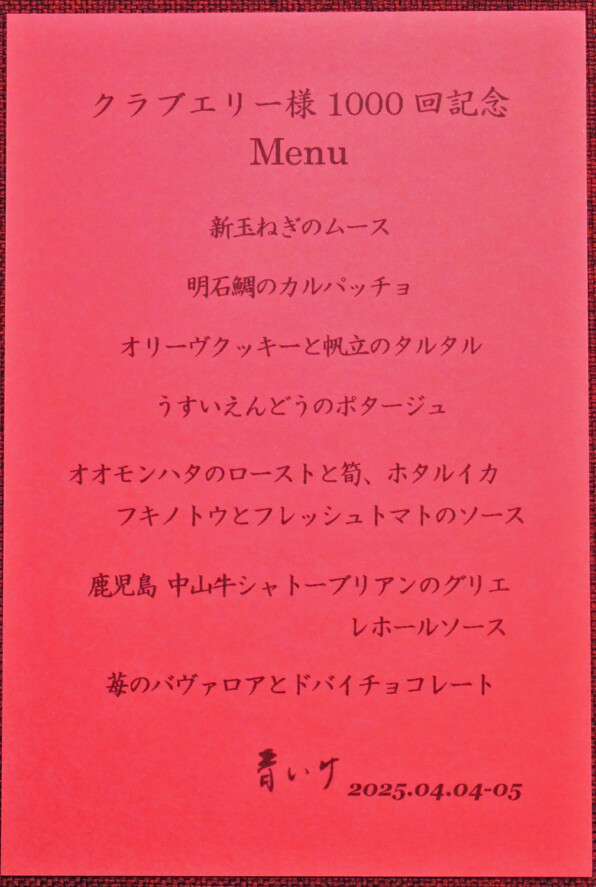 クラブエリー様 1000 回記念
Menu
新玉ねぎのムース
明石鯛のカルパッチョ
オリーヴクッキーと帆立のタルタル
うすいえんどうのポタージュ
オオモンハタのローストと筍、ホタルイカ
フキノトウとフレッシュトマトのソース
鹿児島 中山牛シャトーブリアンのグリエ
レホールソース
苺のバヴァロアとドバイチョコレート
青いけ
2025.04.04-05